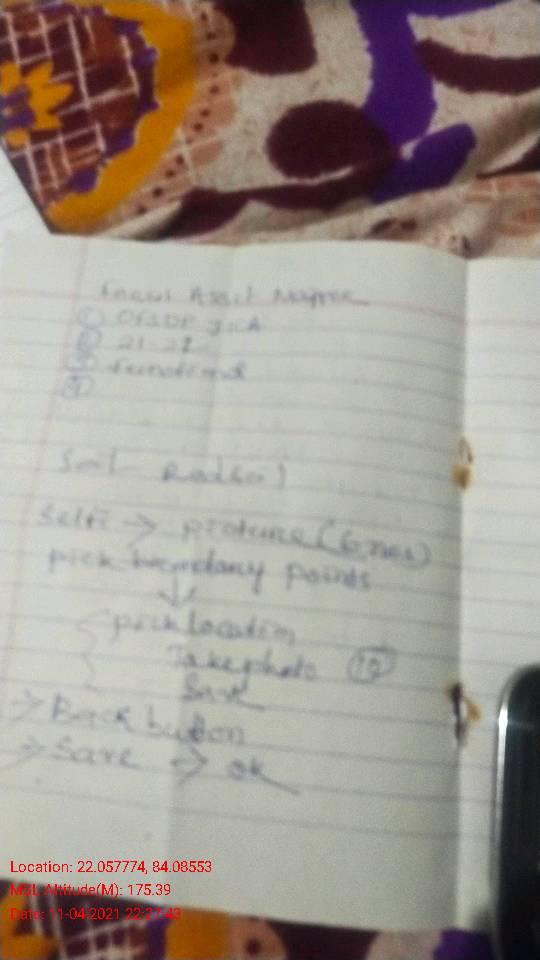 Asset
① OFSDP JICA
② 21-22
③ functional
④
Selfi → picture (6 nos)
pick boundary points
↓
pick location
Take photo ⑫
Save
→ Back button
→ Save → ok
Location: 22.057774, 84.08553
MSL Altitude(M): 175.39
Date: 11-04-2021 22:27:43